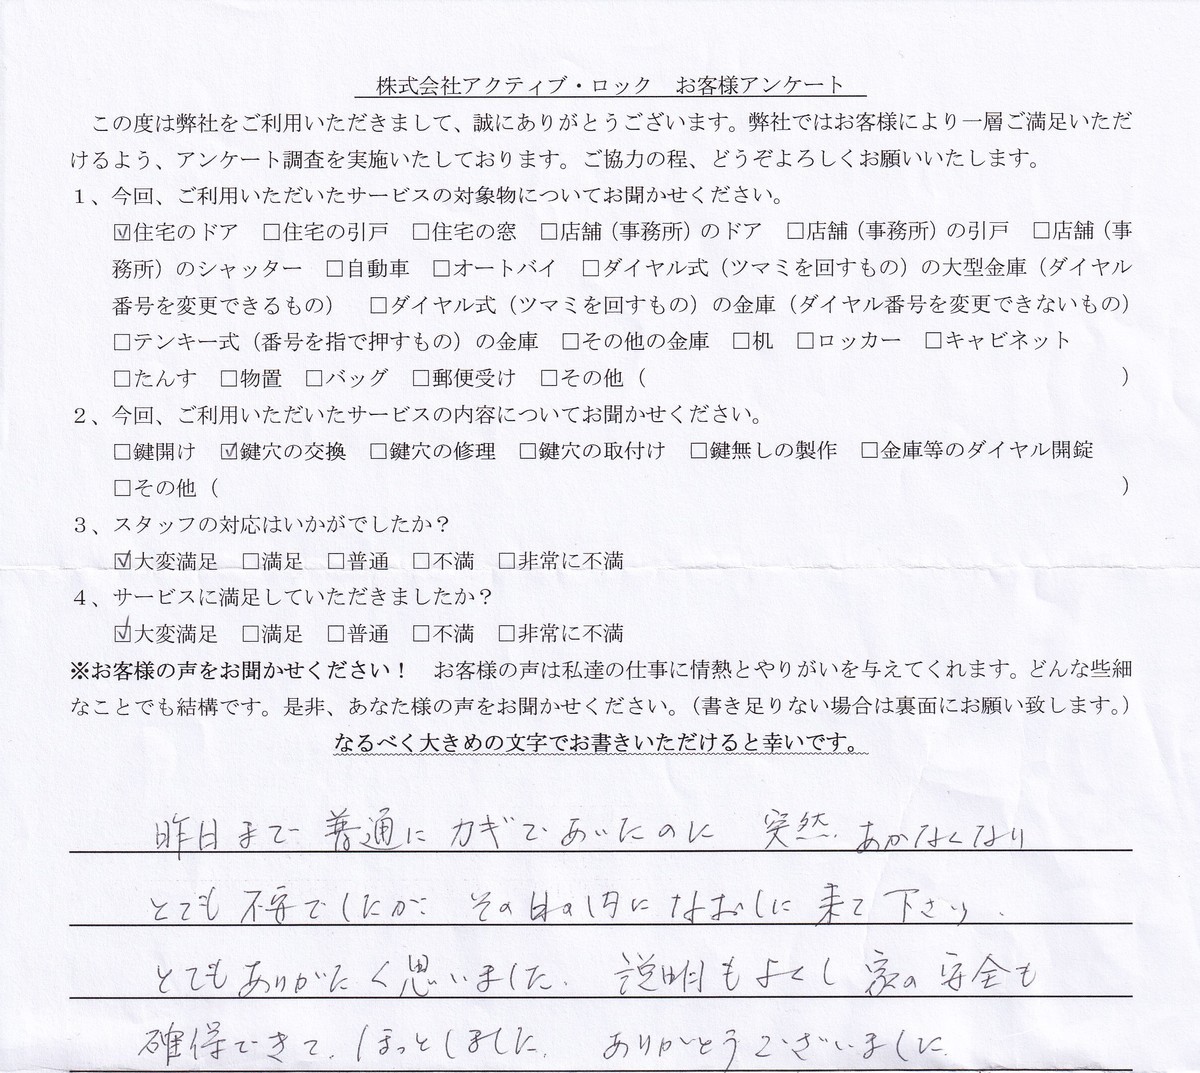 株式会社アクティブ・ロック　お客様アンケート
この度は弊社をご利用いただきまして、誠にありがとうございます。弊社ではお客様により一層ご満足いただ
けるよう、アンケート調査を実施いたしております。ご協力の程、どうぞよろしくお願いいたします。
１、今回、ご利用いただいたサービスの対象物についてお聞かせください。
☑住宅のドア　□住宅の引戸　□住宅の窓　□店舗（事務所）のドア　□店舗（事務所）の引戸　□店舗（事
務所）のシャッター　□自動車　□オートバイ　□ダイヤル式（ツマミを回すもの）の大型金庫（ダイヤル
番号を変更できるもの）　□ダイヤル式（ツマミを回すもの）の金庫（ダイヤル番号を変更できないもの）
□テンキー式（番号を指で押すもの）の金庫　□その他の金庫　□机　□ロッカー　□キャビネット
□たんす　□物置　□バッグ　□郵便受け　□その他（　）
２、今回、ご利用いただいたサービスの内容についてお聞かせください。
□鍵開け　☑鍵穴の交換　□鍵穴の修理　□鍵穴の取付け　□鍵無しの製作　□金庫等のダイヤル開錠
□その他（　）
３、スタッフの対応はいかがでしたか？
☑大変満足　□満足　□普通　□不満　□非常に不満
４、サービスに満足していただきましたか？
☑大変満足　□満足　□普通　□不満　□非常に不満
※お客様の声をお聞かせください！　お客様の声は私達の仕事に情熱とやりがいを与えてくれます。どんな些細
なことでも結構です。是非、あなた様の声をお聞かせください。（書き足りない場合は裏面にお願い致します。）
なるべく大きめの文字でお書きいただけると幸いです。
昨日まで普通にカギであいたのに　突然、あかなくなり
とても不安でしたが、その日の内になおしに来て下さり、
とてもありがたく思いました。説明もよくし家の安全も
確保できて、ほっとしました。ありがとうございました。